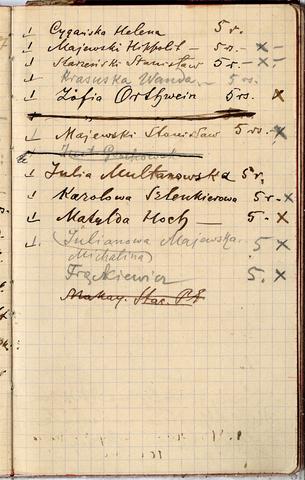 Cygańska Helena 5 r.
Majewski Hipolit - 5 r. - x -
Starzeński Stanisław 5 r. - x -
Krasuska Wanda - 5 rs.
Zofia Orthwein 5 rs. x
Majewski Stanisław 5 rs. x
Julia Multanowska 5 r.
Karolowa Szlenkierowa 5 r - x
Matylda Hoch - 5 - x
(Julianowa Majewska 5 x
Michalina)
Frąckiewicz 5. x